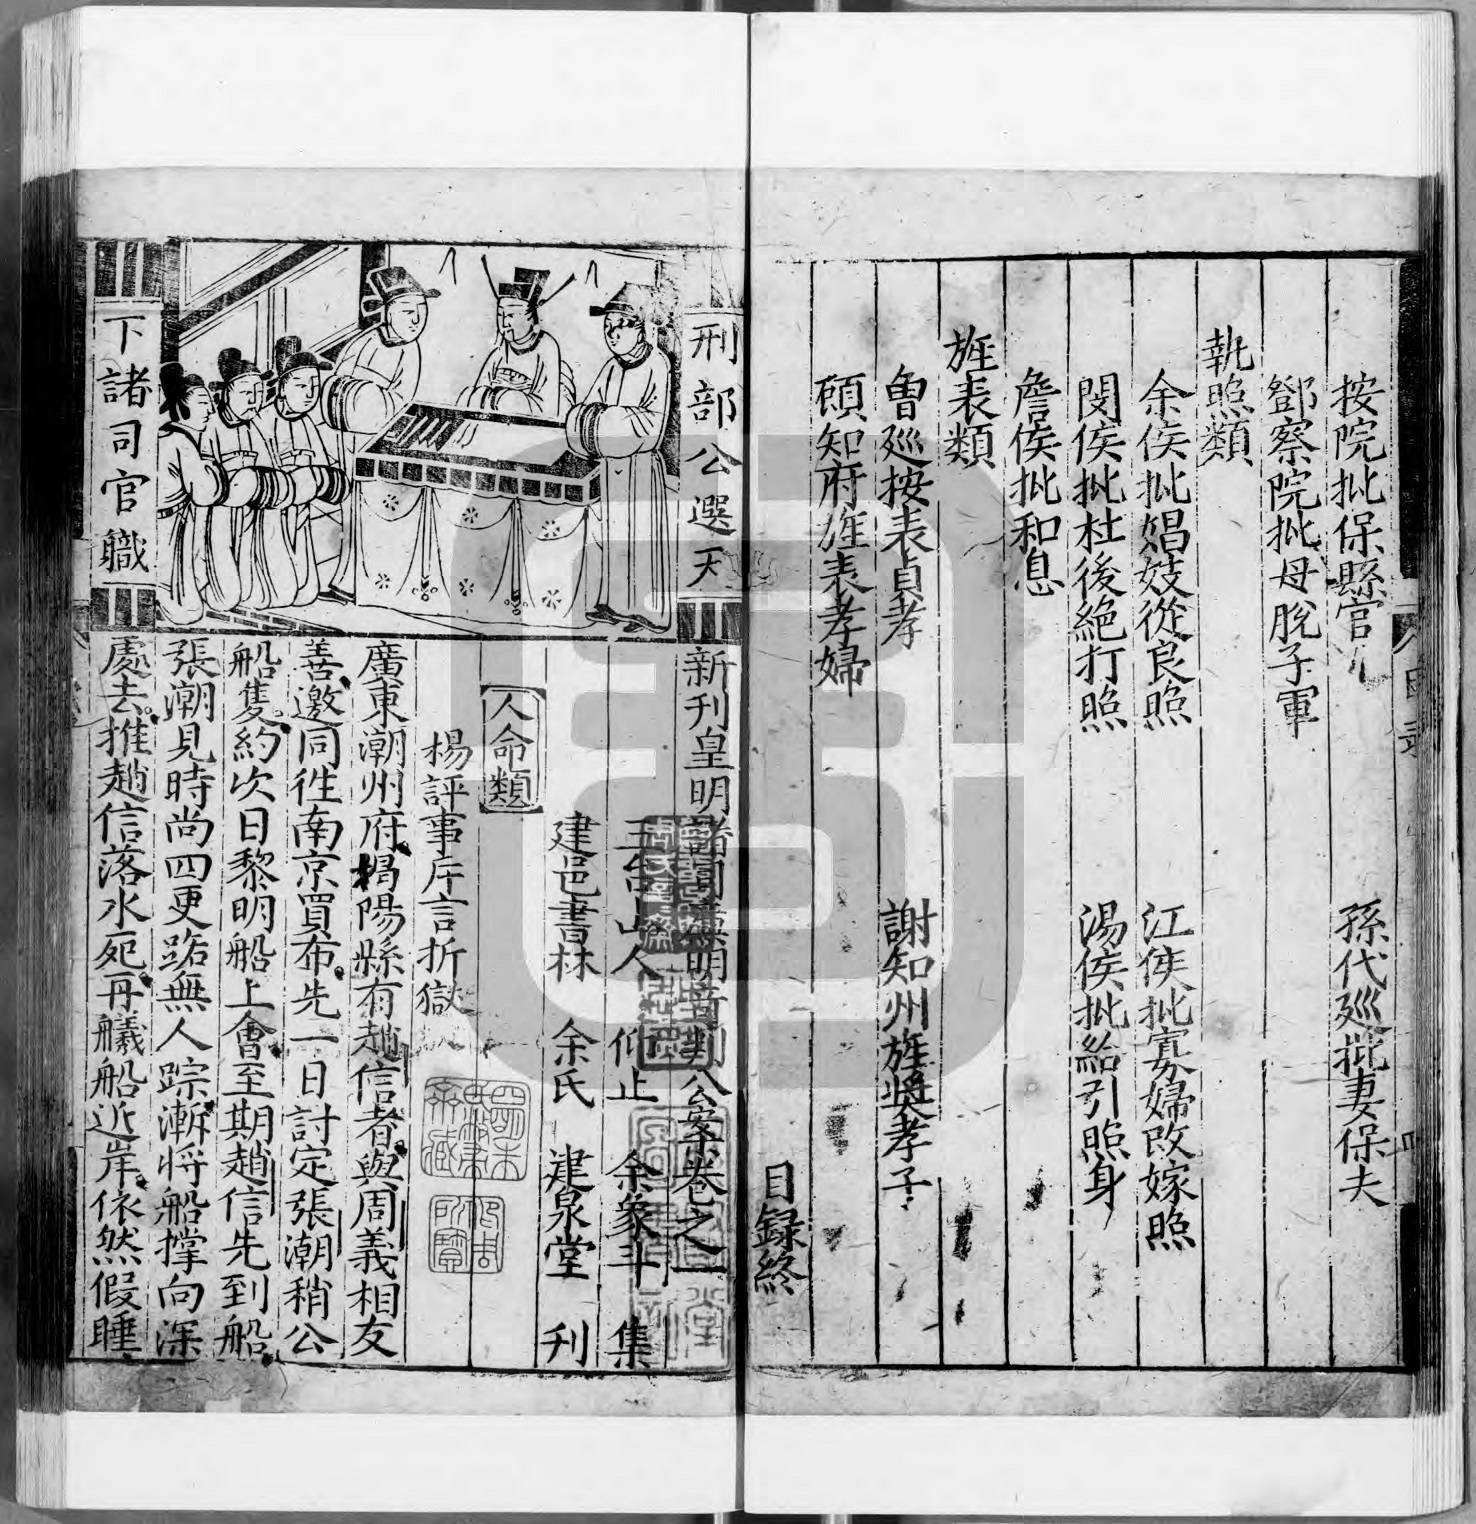 按院批保縣官　孫代廵批妻保夫
鄧察院批母脫子軍
執照類
余侯批娼妓從良照　江侯批寡婦改嫁照
閔侯批杜後絕打照　湯侯批給引照身
詹侯批和息
旌表類
曾廵按表貞孝　謝知州旌奬孝子
顧知府旌表孝婦
目録終
刑部公選天
下諸司官職
新刊皇明諸司廉明竒判公案卷之一
三台山人　仰止　余象斗　集
建邑書林　余氏　建泉堂　刋
人命類
楊評事片言折獄
廣東潮州府揭陽縣有趙信者與周義相友
善邀同徃南京買布先一日討定張潮稍公
船隻約次日黎明船上會至期趙信先到船
張潮見時尚四更路無人踪漸將船撑向深
處去推趙信落水死再艤船近岸依然假睡